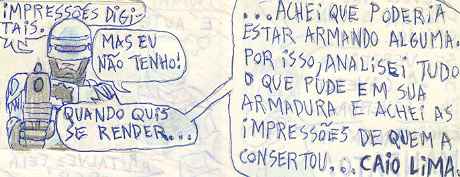 IMPRESSÕES DIGI-
TAIS.
MAS EU
NÃO TENHO!
QUANDO QUIS
SE RENDER...
...ACHEI QUE PODERIA
ESTAR ARMANDO ALGUMA.
POR ISSO, ANALISEI TUDO
O QUE PUDE EM SUA
ARMADURA E ACHEI AS
IMPRESSÕES DE QUEM A
CONSERTOU... CAIO LIMA.